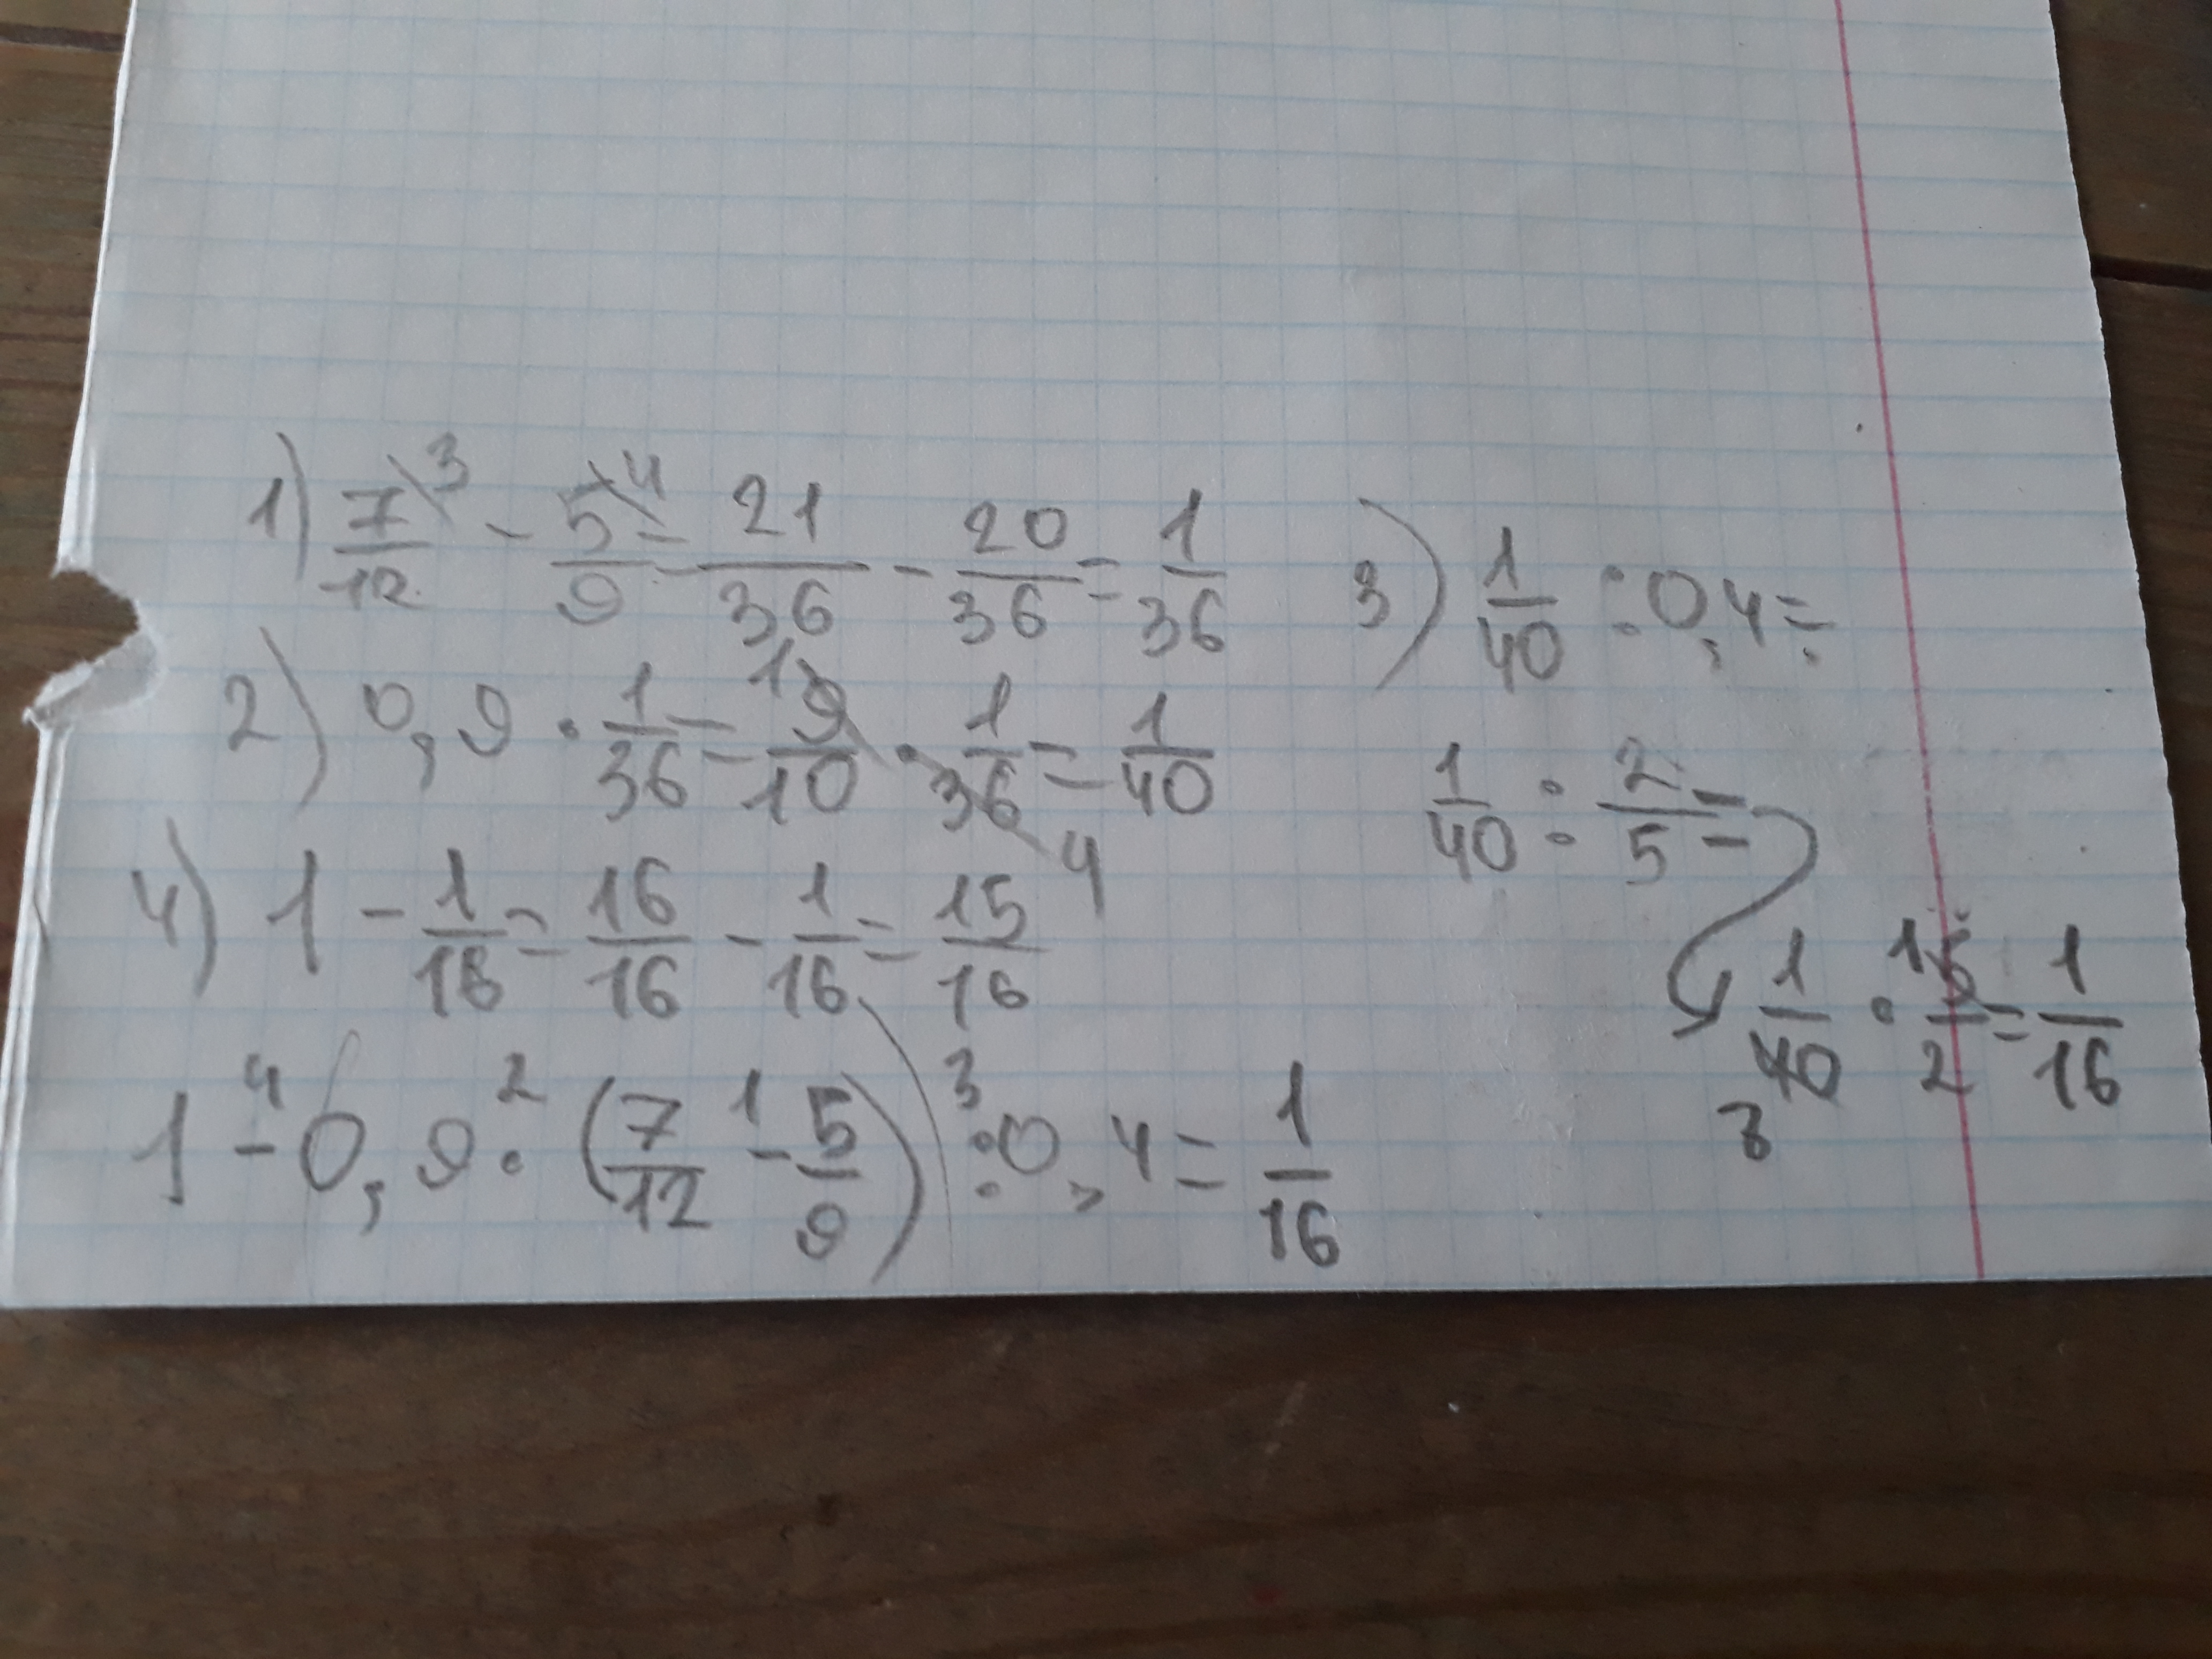 1) 7/12 ³ - 5/9 ⁴ = 21/36 - 20/36 = 1/36
2) 0,9 · 1/36 = 9/10 ¹ · 1/36 ₄ = 1/40
3) 1/40 : 0,4 =
1/40 : 2/5 =
1/40 ₈ · 5/2 ¹ = 1/16
4) 1 - 1/16 = 16/16 - 1/16 = 15/16
1 -⁴ 0,9 ·² (7/12 -¹ 5/9) :³ 0,4 = 1/16